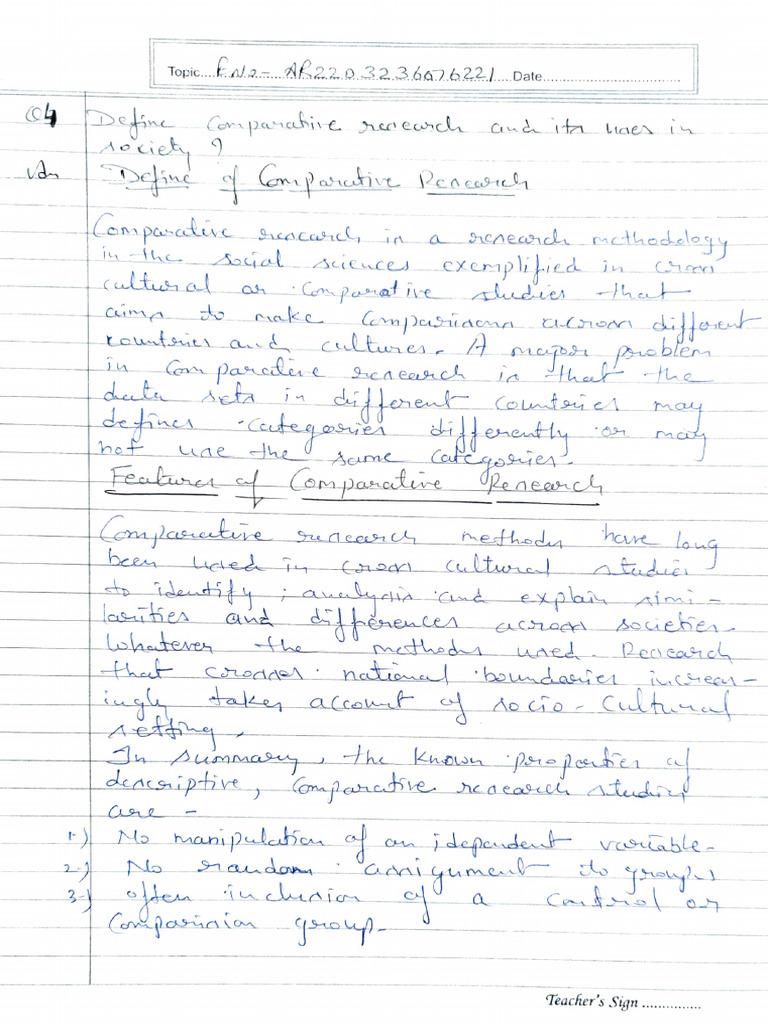 Topic.... E No - AR2203236076221 ....Date..............................
Q4 Define Comparative research and its uses in
society ?
Ans Define of Comparative Research
Comparative research in a research methodology
in the social sciences exemplified in cross
cultural or comparative studies that
aims to make comparisons across different
countries and cultures. A major problem
in Comparative research is that the
data sets in different countries may
defines categories differently or may
not use the same categories.
Features of Comparative Research
Comparative research methods have long
been used in cross cultural studies
to identify, analysis and explain simi-
larities and differences across societies.
Whatever the methods used. Research
that crosses national boundaries increas-
ingly takes account of socio-cultural
setting.
In summary, the known properties of
descriptive, Comparative research studies
are -
1-) No manipulation of an idependent variable.
2-) No random assignment to groups
3-) often inclusion of a control or
Comparision group.
Teacher's Sign ...............